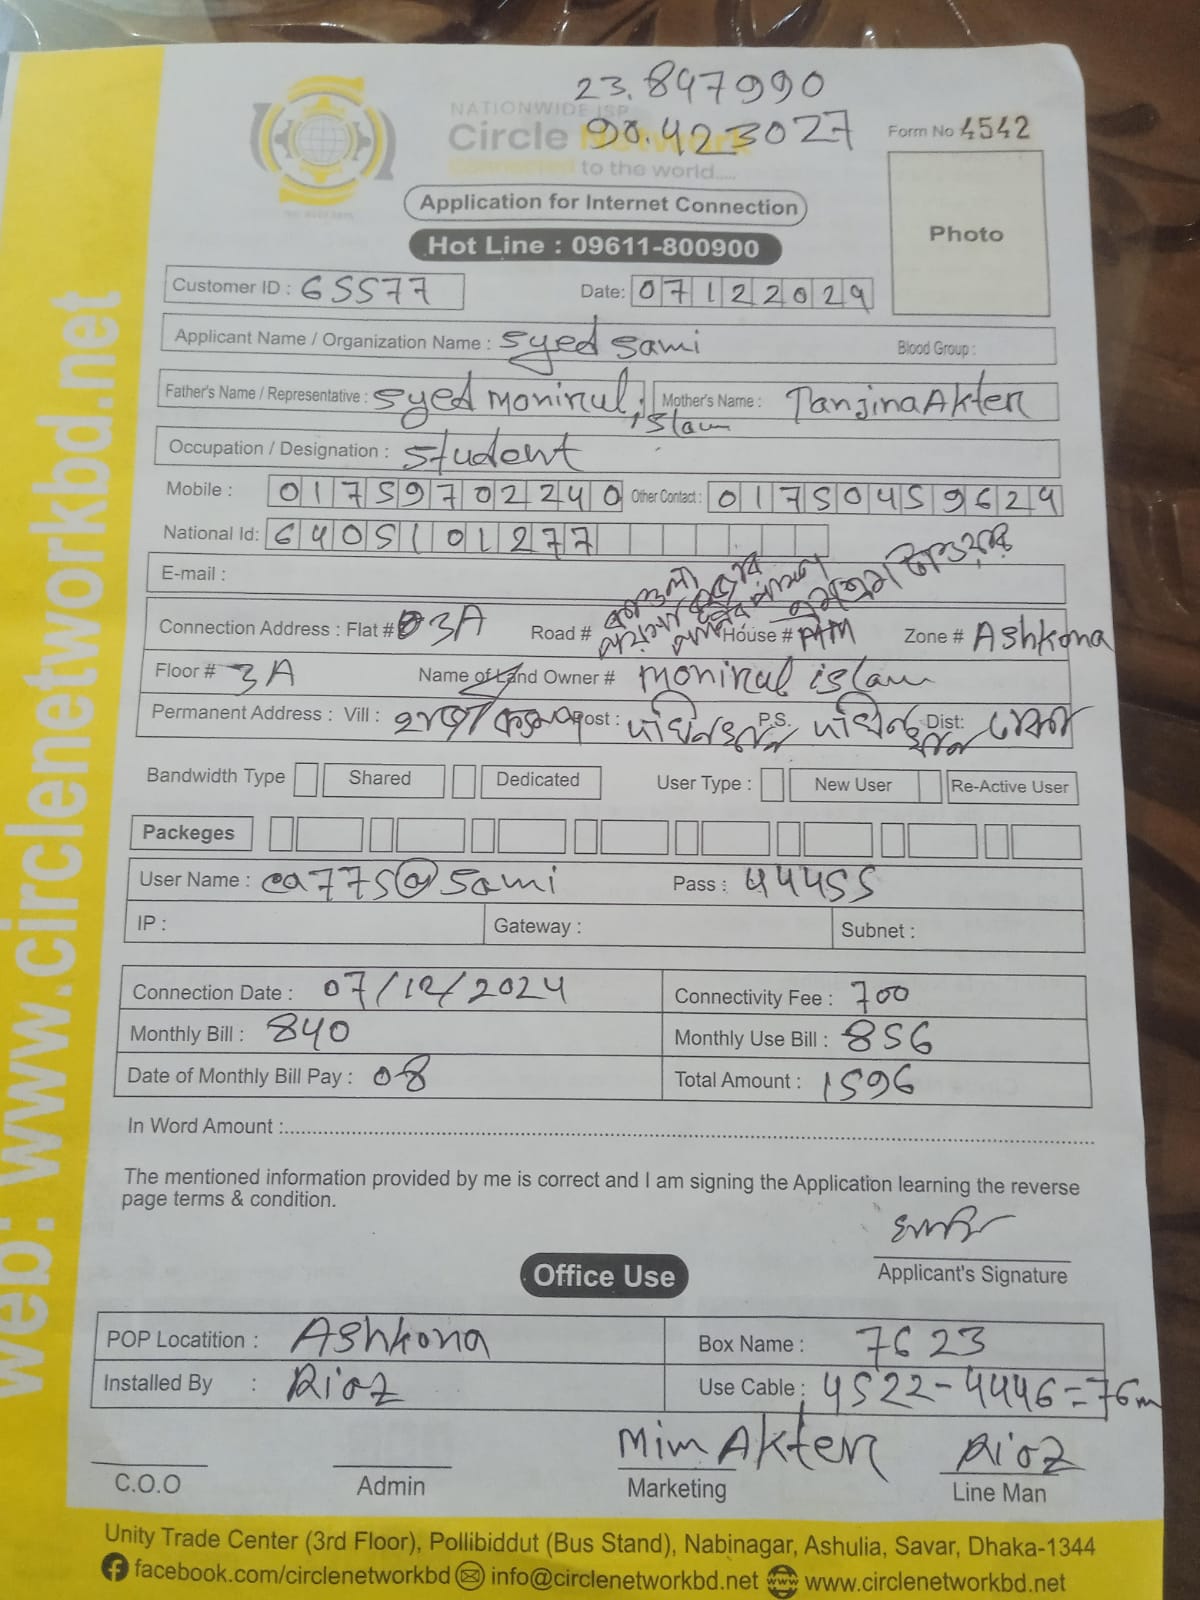 23.847990
90.423027
NATIONWIDE ISP
Circle Network
Connected to the world.....
Form No 4542
Application for Internet Connection
Photo
Hot Line : 09611-800900
Customer ID : 65577
Date: 07122024
Applicant Name / Organization Name : Syed Sami
Blood Group :
Father's Name / Representative : Syed Monirul islam
Mother's Name : Tanjina Akter
Occupation / Designation : Student
Mobile : 01759702240 Other Contact : 01750459624
National Id: 6405101277
E-mail :
Connection Address : Flat # 3A Road # House # Zone # Ashkona
Floor # 3A Name of Land Owner # monirul islam
Permanent Address : Vill : Post : P.S. Dist:
Bandwidth Type Shared Dedicated User Type : New User Re-Active User
Packeges
User Name : ca775@sami Pass : 44455
IP : Gateway : Subnet :
Connection Date : 07/12/2024 Connectivity Fee : 700
Monthly Bill : 840 Monthly Use Bill : 856
Date of Monthly Bill Pay : 08 Total Amount : 1596
In Word Amount :
The mentioned information provided by me is correct and I am signing the Application learning the reverse
page terms & condition.
Applicant's Signature
Office Use
POP Locatition : Ashkona Box Name : 7623
Installed By : Rioz Use Cable : 4522-4446=76m
Mim Akter Rioz
C.O.O Admin Marketing Line Man
Unity Trade Center (3rd Floor), Pollibiddut (Bus Stand), Nabinagar, Ashulia, Savar, Dhaka-1344
facebook.com/circlenetworkbd info@circlenetworkbd.net www.circlenetworkbd.net
web: www.circlenetworkbd.net